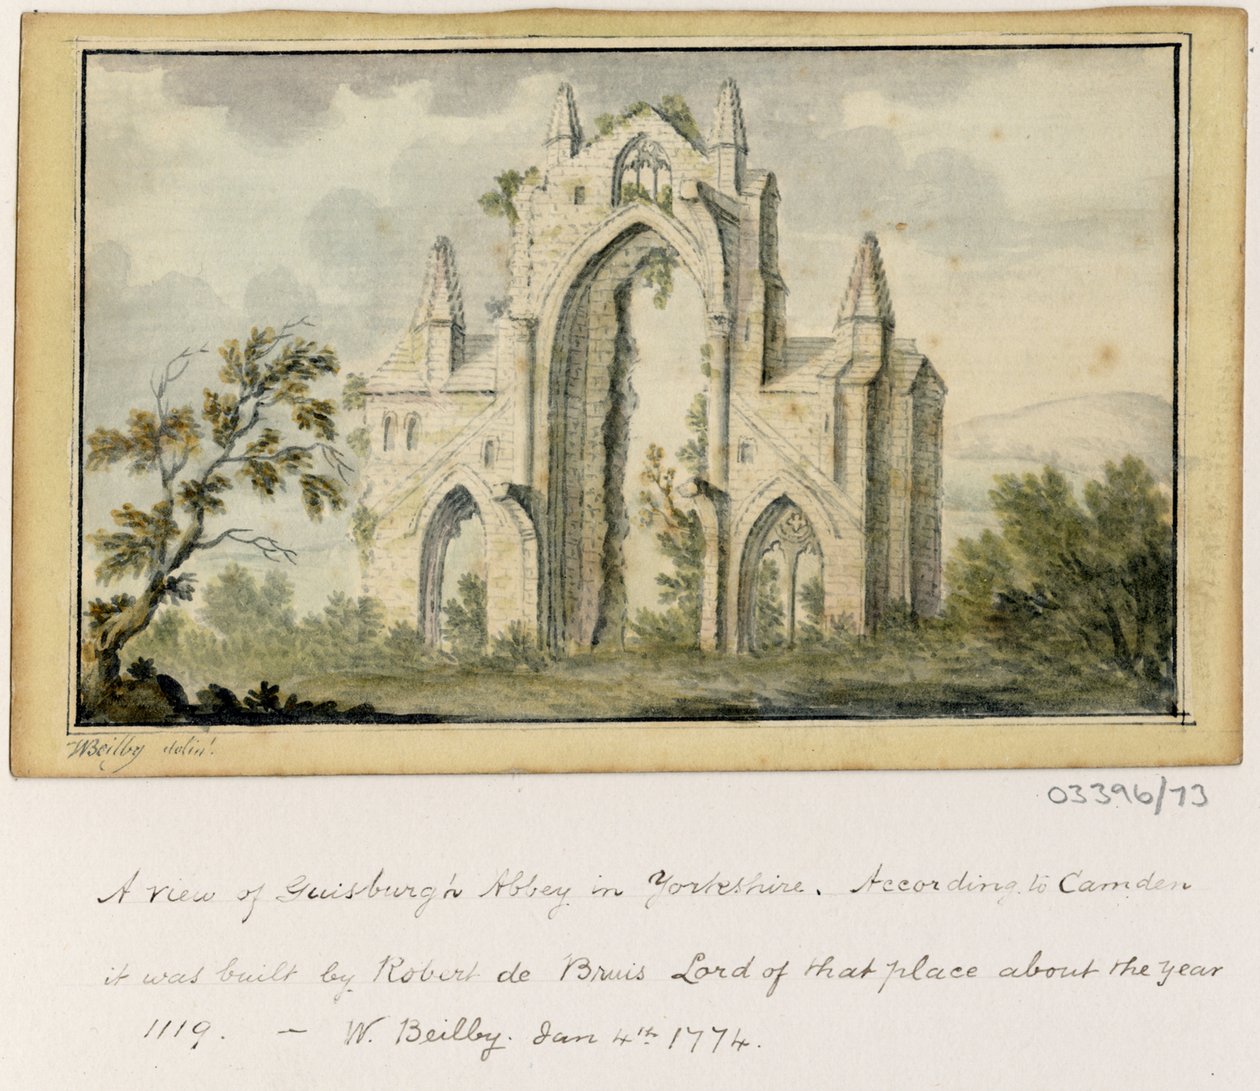 WBeilby delin!.
03396/73
A view of Guisburgh Abbey in Yorkshire. According to Camden
it was built by Robert de Bruis Lord of that place about the year
1119. — W. Beilby. Jan 4th 1774.